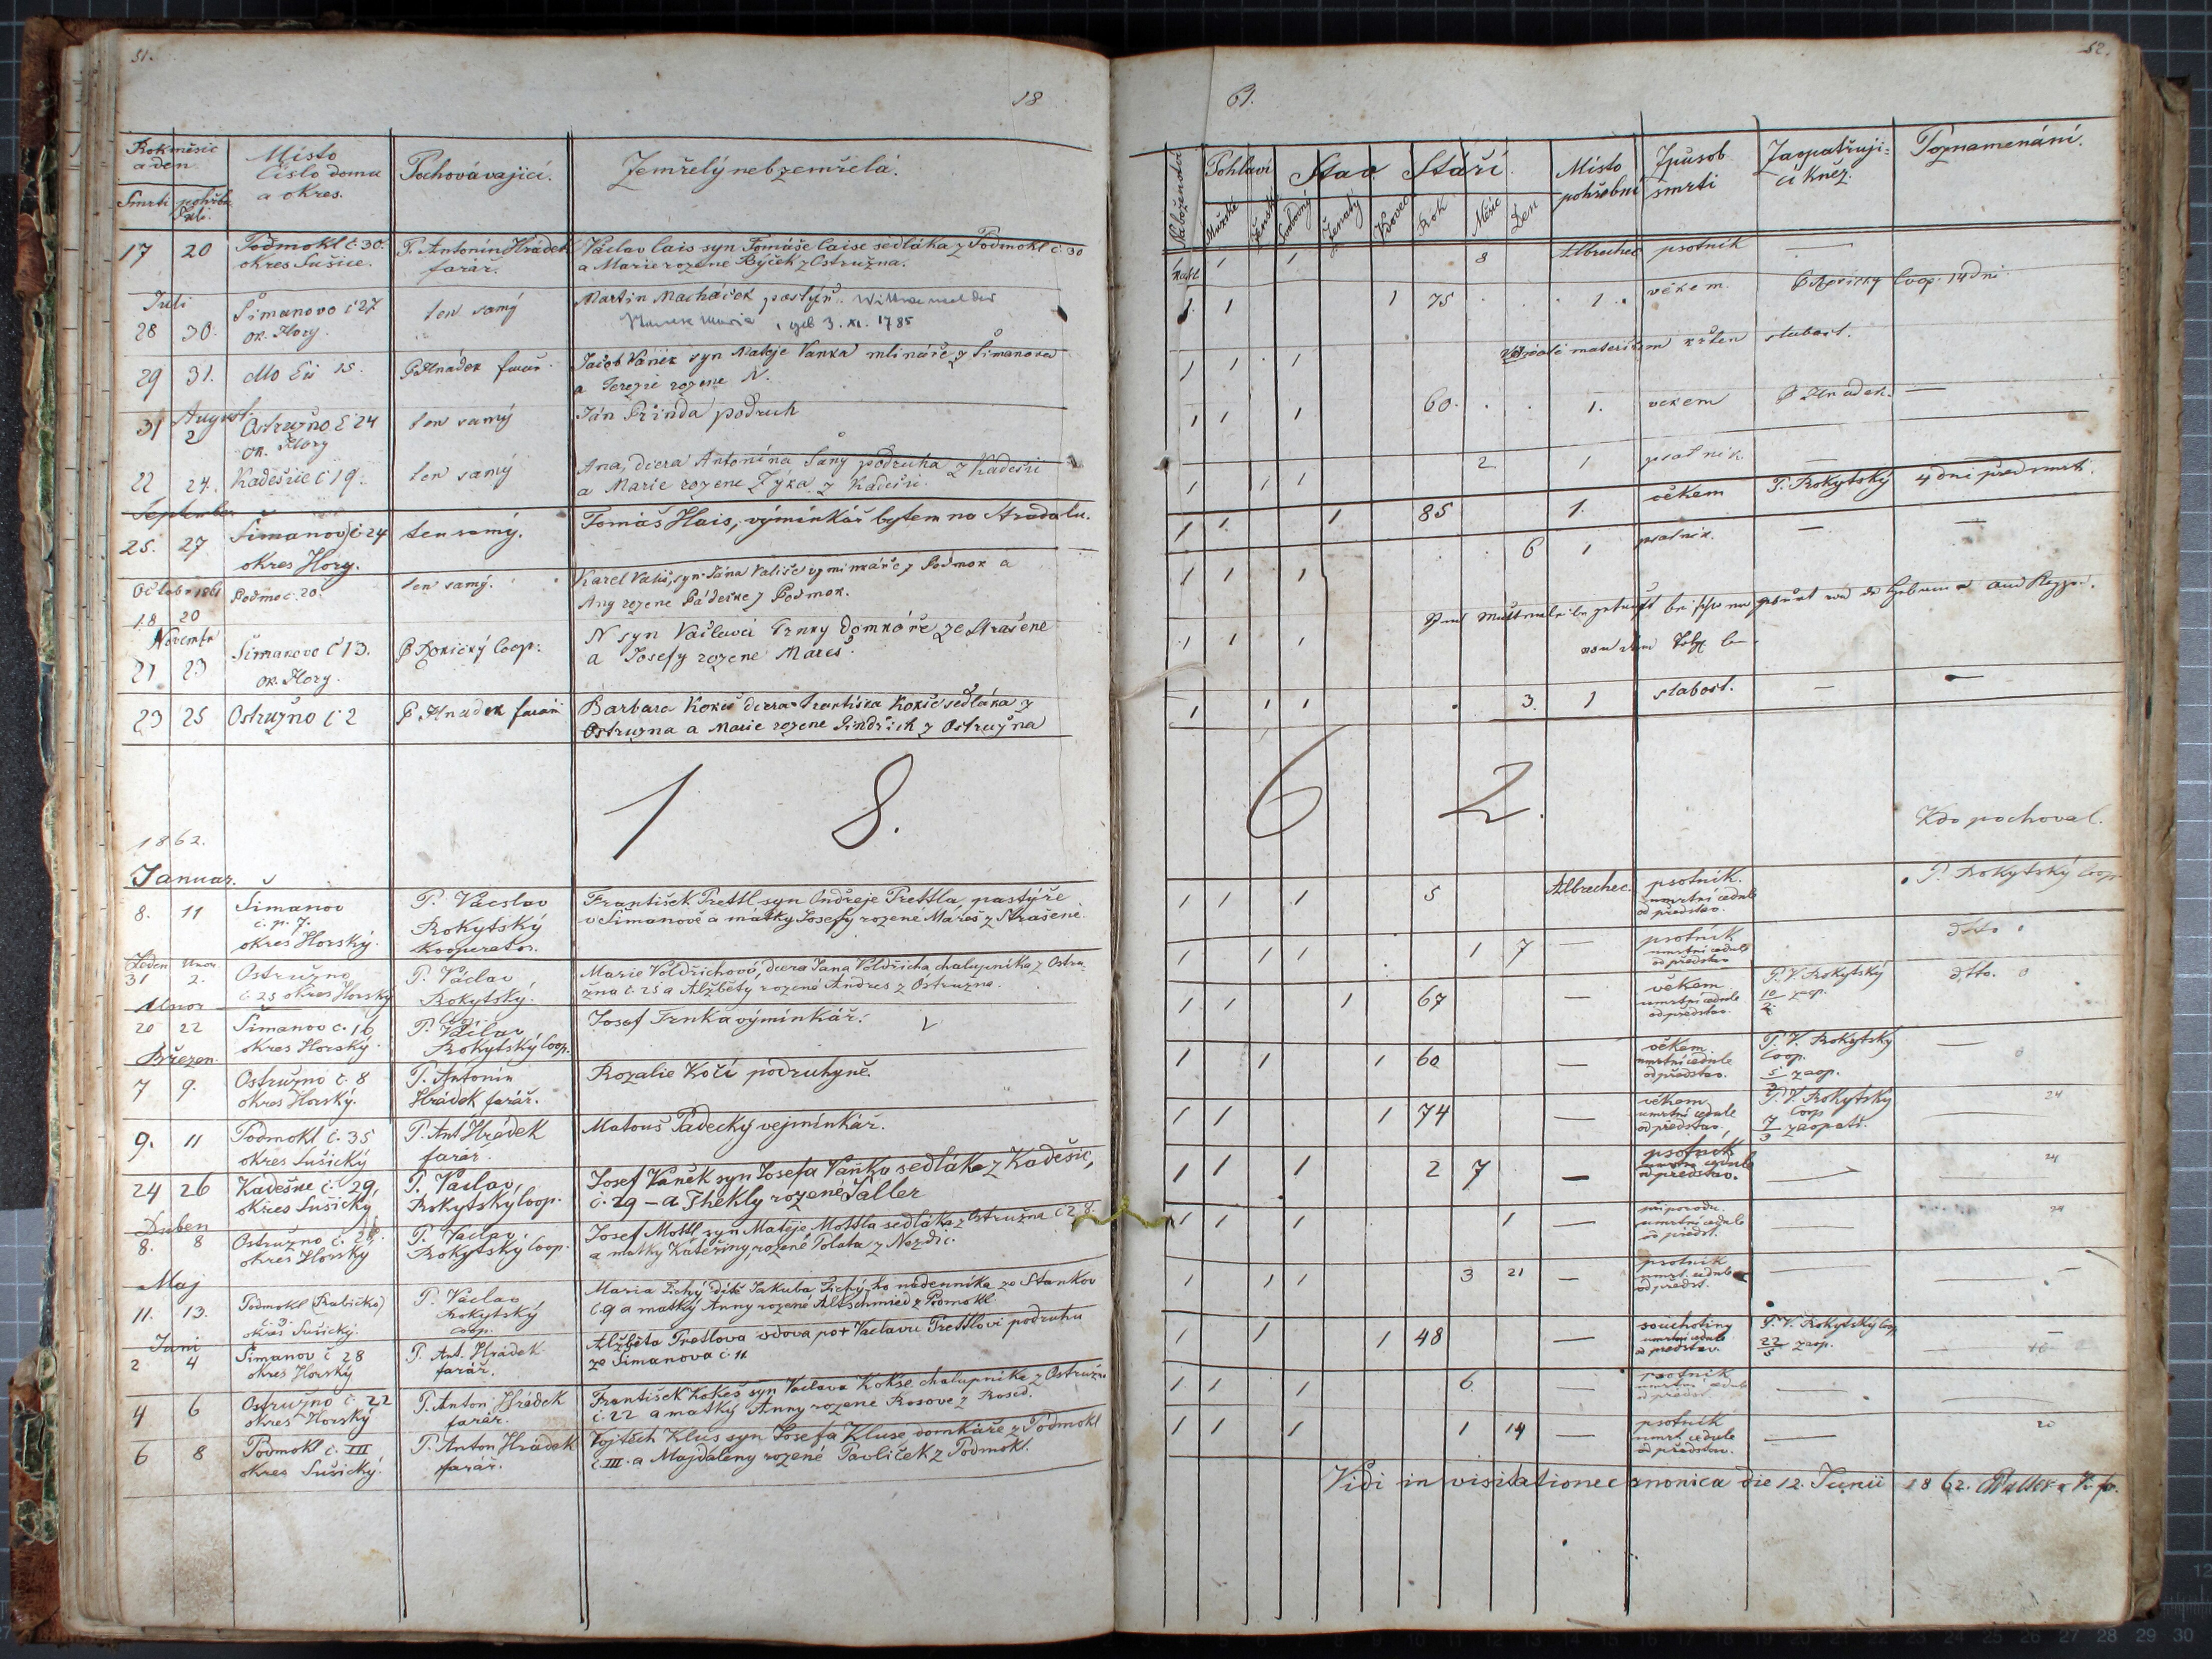 51.
18
Rok měsíc
a den.
Smrti pohřbu
Juli.
Místo
číslo domu
a okres.
Pochovávající.
Zemřelý neb zemřelá.
17 20 Podmokl č. 30.
okres Sušice.
P. Antonín Hrádek
farář.
Václav Cais syn Tomáše Caise sedláka z Podmokl č. 30
a Marie rozene Býček z Ostružna.
Juli
28 30. Šimanovo č 27
ok. Hory.
ten samý
Martin Macháček pastýř.
Maria, geb 3. XI. 1785
29 31. č 15.
P Hradek farář.
Jacob Vaněk syn Mateje Vanka mlináře z Šimanova
a Terezie rozene N.
31 August 2 Ostružno č 24
ok. Hory
ten samý
Ján Přinda podruh
22 24. Kadešice č 19.
ten samý
Ana, dcera Antonína Šany podruha z Kadešic
a Marie rozene Zyka z Kadešic.
September
25. 27 Šimanov č. 24
okres Hory.
ten samý.
Tomáš Hais, výminkář bytem na Stradalu.
October 1861
18 20 Podmo č. 20.
ten samý.
Karel Vališ, syn Jána Vališe vyminkáře z Podmok a
Any rozene Pádecke z Podmok.
November
21 23 Šimanovo č 13.
ok. Hory.
P Rokický Coop.
N syn Vaclava Trnky domkáře ze Strašene
a Josefy rozene Mareš.
23 25 Ostružno č 2
P Hradek farář
Barbara Kokeš dcera Františka Kokše sedláka z
Ostruzna a Marie rozene Jindřich z Ostružna
1 8.
1862.
Januar.
8. 11 Šimanov
č. p. 7.
okres Horský.
P. Václav
Rokytský
Kooperator.
František Prettl syn Ondřeje Prettla, pastýře
v Šimanově a matky Josefy rozene Mareš z Strašené.
Leden Unor
31 2. Ostružno
č. 25 okres Horský
P. Václav
Rokytský.
Coop.
Marie Voldřichová, dcera Jana Voldřicha, chalupníka z Ostru-
žna č. 25 a Alžběty rozené Andres z Ostružna.
Unor
20 22 Šimanov č. 16
okres Horský.
P. Václav
Rokytský Coop.
Josef Trnka výminkář.
Březen.
7 9. Ostružno č. 8
okres Horský.
P. Antonín
Hrádek farář.
Rozalie Kočí podruhyně.
9. 11 Podmokl č. 35
okres Sušický
P. Ant Hrádek
farář.
Matouš Padecký vejminkář.
24 26 Kadešice č. 29,
okres Sušický,
P. Václav,
Rokytský Coop.
Josef Vaněk syn Josefa Vaňka sedláka z Kadešic,
č. 29 – a Thekly rozené Saller
Duben
8. 8 Ostružno č. 28.
okres Horský
P. Václav,
Rokytský Coop.
Josef Mottl, syn Matěje Mottla sedláka z Ostružna č 28.
a matky Kateřiny, rozené Polata z Nezdic.
Maj
11. 13. Podmokl (Rabičko)
okres Sušický.
P. Václav
Rokytský
coop.
Maria Tichý dítě Jakuba Tichýho nádenníka ze Stankov
č. 9 a matky Anny rozené Altschmied z Podmokl.
Juni
2 4 Šimanov č 28
okres Horský
P. Ant. Hrádek
farář.
Alžběta Prettlova vdova po + Vaclavu Prettlovi podruhu
ze Šimanova č. 11
4 6 Ostružno č. 22
okres Horský
P. Anton Hrádek
farář.
František Kokeš syn Václava Kokše chalupníka z Ostružna
č. 22 a matky Anny rozené Rosove z Rosed.
6 8 Podmokl č. III
okres Sušický.
P. Anton Hrádek
farář.
Vojtěch Klus syn Josefa Kluse domkáře z Podmokl
č. III. a Majdaleny rozené Pavlíček z Podmokl.
52.
61.
Náboženství
Pohlaví
Mužské
Ženské
Stav.
Svobodný
Ženatý
Vdovec
Stáří.
Rok
Měsíc
Den
Místo
pohřební
Způsob
smrti
Zaopatřují-
cí kněz.
Poznamenání.
kat. 1 1 8 Albrechec psotník —
1 1 1 75 1. věkem. P Rokicky Coop. 14 dni
1 1 1 materském křten slabost.
1 1 1 60. 1. vekem P Hradek. —
1 1 1 2 1 psotnik — —
1 1 1 85 1. věkem P. Rokytský 4 dni před smrti.
1 1 1 6 1 psotnik. — —
1 1 1
1 1 1 3. 1 slabost. — —
6 2.
Kdo pochoval.
1 1 1 5 Albrechec. psotník.
umrtní cedule
od představ.
P. Rokytský Coop.
1 1 1 1 7 — psotník
umrtní cedule
od představ.
dtto
1 1 1 67 — věkem
umrtní cedule
od představ.
P. V. Rokytský
10/2 zaop.
dtto.
1 1 1 60 — věkem
umrtní cedule
od představ.
P. V. Rokytský
Coop.
5/3 zaop.
—
1 1 1 74 — věkem
umrtní cedule
od představ.
P. V. Rokytský
Coop
7/3 zaopatř.
24
1 1 1 2 7 — psotník
umrtní cedule
od představ.
— 24
1 1 1 1 — při porodu.
umrtní cedule
od předst.
24
1 1 1 3 21 — psotník
umrt. cedule
od předst.
—
1 1 1 48 — souchotiny
umrtní cedule
od představ.
P. V. Rokytský Coop
22/5 zaop.
—
1 1 1 6. — psotník
umrtní cedule
od předst.
—
1 1 1 1 14 — psotník
umrt. cedule
od představ.
— 20
Vidi in visitatione canonica die 12. Junii 1862.